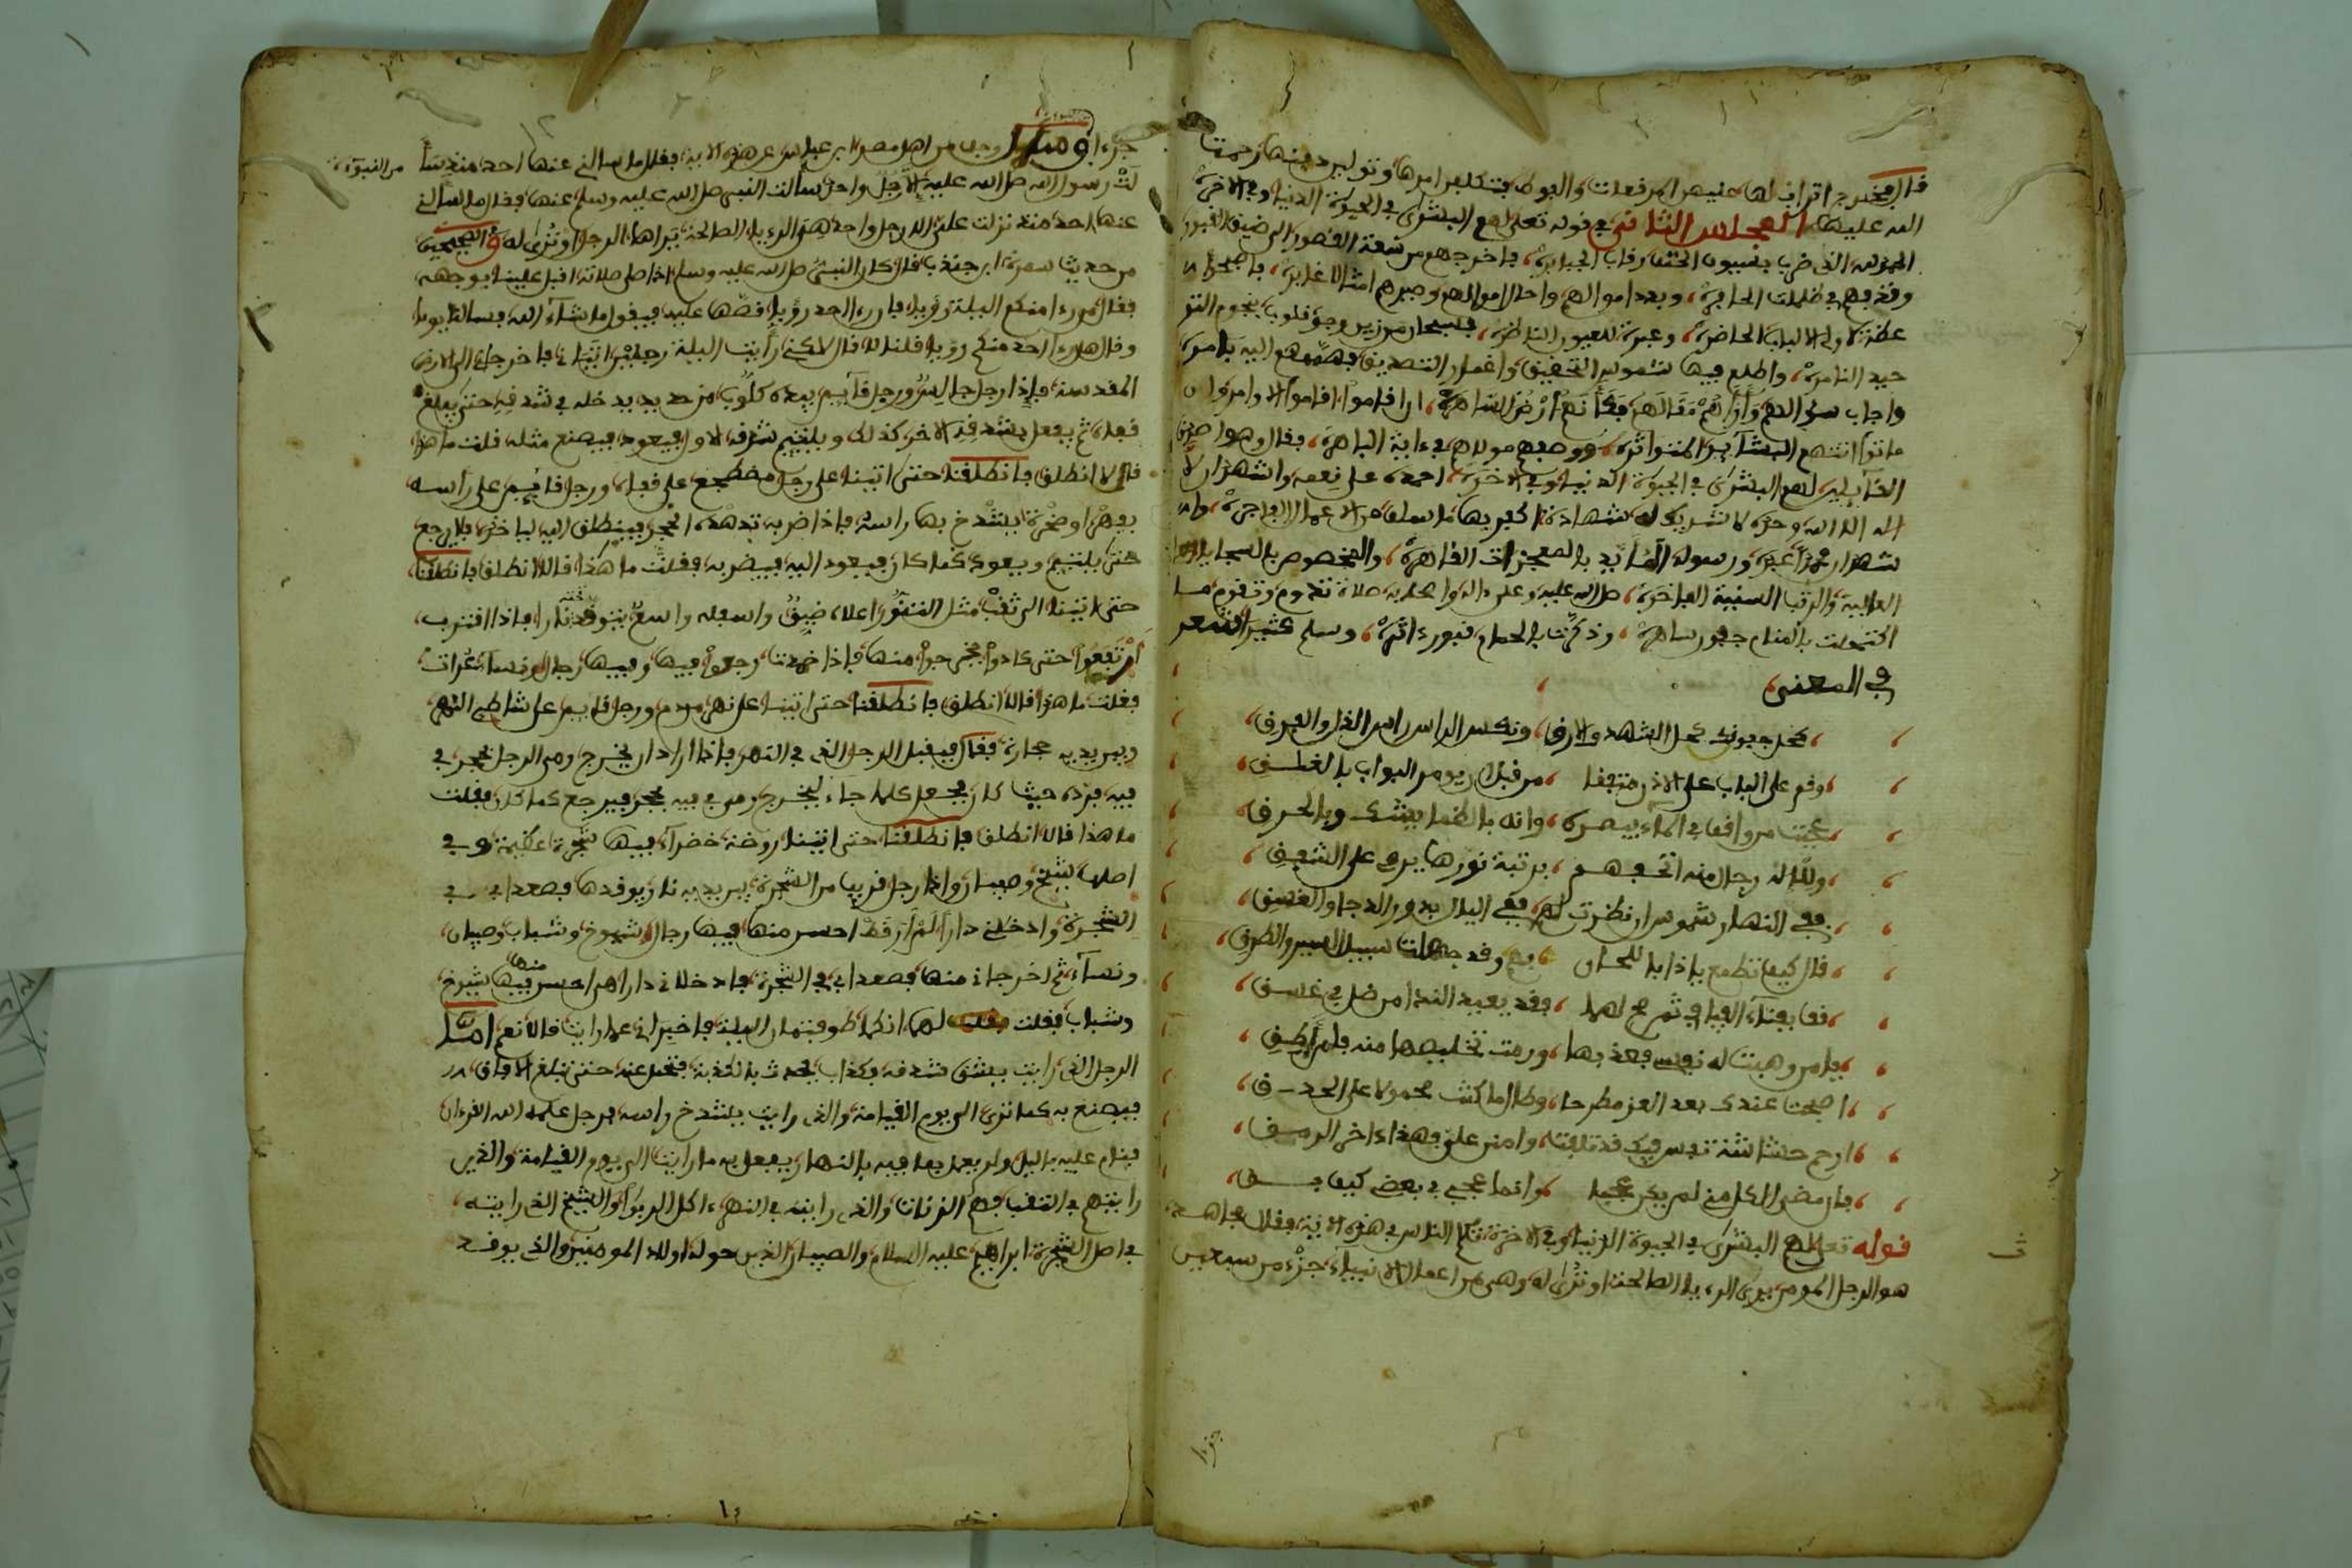 قال فخرج اتراب لها عليهم المرفعات والبوط فتكلفن امرها وتولين دفنها رحمت
الله عليها المجلس الثاني في قوله تعلى لهم البشرى في الحيوة الدنيا وفي الاخرة
الحمد لله الذي ضرب بسيوف الحتف رقاب الجبابرة، واخرجهم من سعة القصور الى ضيق القبور
وقذفهم في ظلمات الحافرة، وبدد اموالهم واحال احوالهم وصيرهم امثالا غابرة، فاصبحوا
عظة لاولي الالباب الحاضرة، وعبرة للعيون الناظرة، فسبحان من زين وجوه قلوب نجوم التو
حيد النامرة، واطلع فيها شموس التحقيق واغمار التصديق فهممهم اليه بامره
واجاب سوالهم وازاهم فقالهم فكأنهم أرض الساهرة، ان اقاموا اقاموا الاوامر وان
ماتوا اتتهم البشائر المتواترة، ووصفهم مولاهم في ءاية الباهرة، فقال وهو اصدق
القائلين لهم البشرى في الحيوة الدنيا وفي الاخرة، احمده على نعمه واشهد ان لا
اله الا الله وحده لا شريك له شهادة اكفر بها ما سلف من الاعمال الفاجرة، وا
شهد ان محمدا عبده ورسوله المؤيد بالمعجزات القاهرة، والمخصوص بالسجايا
العالية والرتب السنية الفاخرة، صلى الله عليه وعلى ءاله واصحابه صلاة تدوم وتقوم ما
اكتحلت بالمنام جفون ساهرة، وذكرت بالحمام قبور داثرة، وسلم كثيرا الشعر
في المعنى
كحل جفونك كحل السهد والارق، ونكس الراس راس الذل والفرق
وقم على الباب على الاذن متيقا، من قبل ان يومر البواب بالغلق
عجبت من واقف في الماء يبصره، وانه بالظما يشكى وبالحرق
ولله رجال منه اتحفهم، برتبة نورها يربى على الشفق
ففي النهار شموس ان نظرت لهم، وفي الليال بدور الدجا والغسق
قال كيف تطمع يا ذا باللحاق، بهم وقد جهلت سبيل السير والطرق
قف بفناء الفيافي ثم صح لهفا، فقد يفيد الندا من ضل في غسق
يا من وهبت له نفسي فعذبها، ورمت تخليصها منه فلم اطق
اصبحت عندك بعد العز مطرحا، وطال ما كنت محمولا على الحدق
ارحم حشاشة نفس فيك قد تلفت، وامنن علي فهذا ءاخر الرمق
فان مضى الكل مني لم يكن عجبا، وانما عجبي في بعض كيف بق
قوله تعلى لهم البشرى في الحيوة الدنيا وفي الاخرة تكلم الناس في هذه الاية، فقال مجاهد
هو الرجل المومن يرى الرءيا الصالحة او ترى له وهي من اعمال الانبياء، جزء من سبعين
جزءا
جزءا من النبوءة
وسئل رجل من اهل مصر ابن عباس عن هذه الاية، فقال ما سالني عنها احد منذ سأ
لت رسول الله صلى الله عليه وسلم الا رجل واحد سألت النبي صلى الله عليه وسلم عنها، فقال ما سألني
عنها احد منذ نزلت علي الا رجل واحد هي الرءيا الصالحة يراها الرجل او ترى له وفي الصحيحين
من حديث سمرة ابن جندب قال كان النبي صلى الله عليه وسلم اذا صلى صلاته اقبل علينا بوجهه
فقال من رءا منكم الليلة رؤيا، فان رءا احد رؤيا قصها عليه فيقول ما شاء الله فسالنا يوما
وقال هل رءا احد منكم رؤيا قلنا لا قال لاكني رأيت الليلة رجلين اتياني فاخرجاني الى الارض
المقدسة فاذا رجل جالس ورجل قائم بيده كلوب من حديد يدخله في شدقه حتى يبلغ
قفاه ثم يفعل بشدقه الاخر كذلك ويلتئم شدقه الاول فيعود فيصنع مثله قلت ما هذا
قالا لا انطلق فانطلقنا حتى اتينا على رجل مضطجع على قفاه، ورجل قائم على رأسه
بفهر او صخرة يشدخ بها راسه فاذا ضربه تدهده الحجر فينطلق اليه لياخذه فلا يرجع
حتى يلتئم ويعود كما كان فيعود اليه فيضربه فقلت ما هذا قالا انطلق فانطلقنا
حتى اتينا الى ثقب مثل التنور اعلاه ضيق واسفله واسع يتوقد تحته نارا فاذا اقترب
ارتفعوا حتى كادوا يخرجوا منها فاذا خمدت رجعوا فيها وفيها رجال ونساء عراة
فقلت ما هذا قالا انطلق فانطلقنا حتى اتينا على نهر من دم ورجل قايم على شاطئ النهر
وبين يديه حجارة فقال فيقبل الرجل الذي في النهر فاذا اراد ان يخرج رمى الرجل بحجر في
فيه فرده حيث كان فجعل كلما جاء ليخرج رمى في فيه بحجر فيرجع كما كان فقلت
ما هذا قالا انطلق فانطلقنا حتى اتينا روضة خضراء فيها شجرة عظيمة وفي
اصلها شيخ وصبيان واذا رجل قريب من الشجرة بين يديه نار يوقدها فصعدا بي في
الشجرة وادخلاني دارا لم أر قط احسن منها فيها رجال شيوخ وشباب وصبيان
ونساء ثم اخرجاني منها فصعدا بي في الشجرة فادخلاني دارا هي احسن منها فيها شيوخ
وشباب فقلت لهما انكما طوفتماني الليلة فاخبراني عما رايت قالا نعم اما
الرجل الذي رايت يشق شدقه فكذاب يحدث بالكذبة فتحمل عنه حتى تبلغ الافاق
فيصنع به كما ترى الى يوم القيامة والذي رايت يشدخ راسه فرجل علمه الله القرءان
فنام عليه بالليل ولم يعمل بما فيه بالنهار يفعل به ما رايت الى يوم القيامة والذين
رايتهم في الثقب فهم الزنات والذي رايته في النهر ءاكل الربوا والشيخ الذي رايته
في اصل الشجرة ابراهيم عليه السلام والصبيان الذين حوله اولاد المومنين والذي يوقد